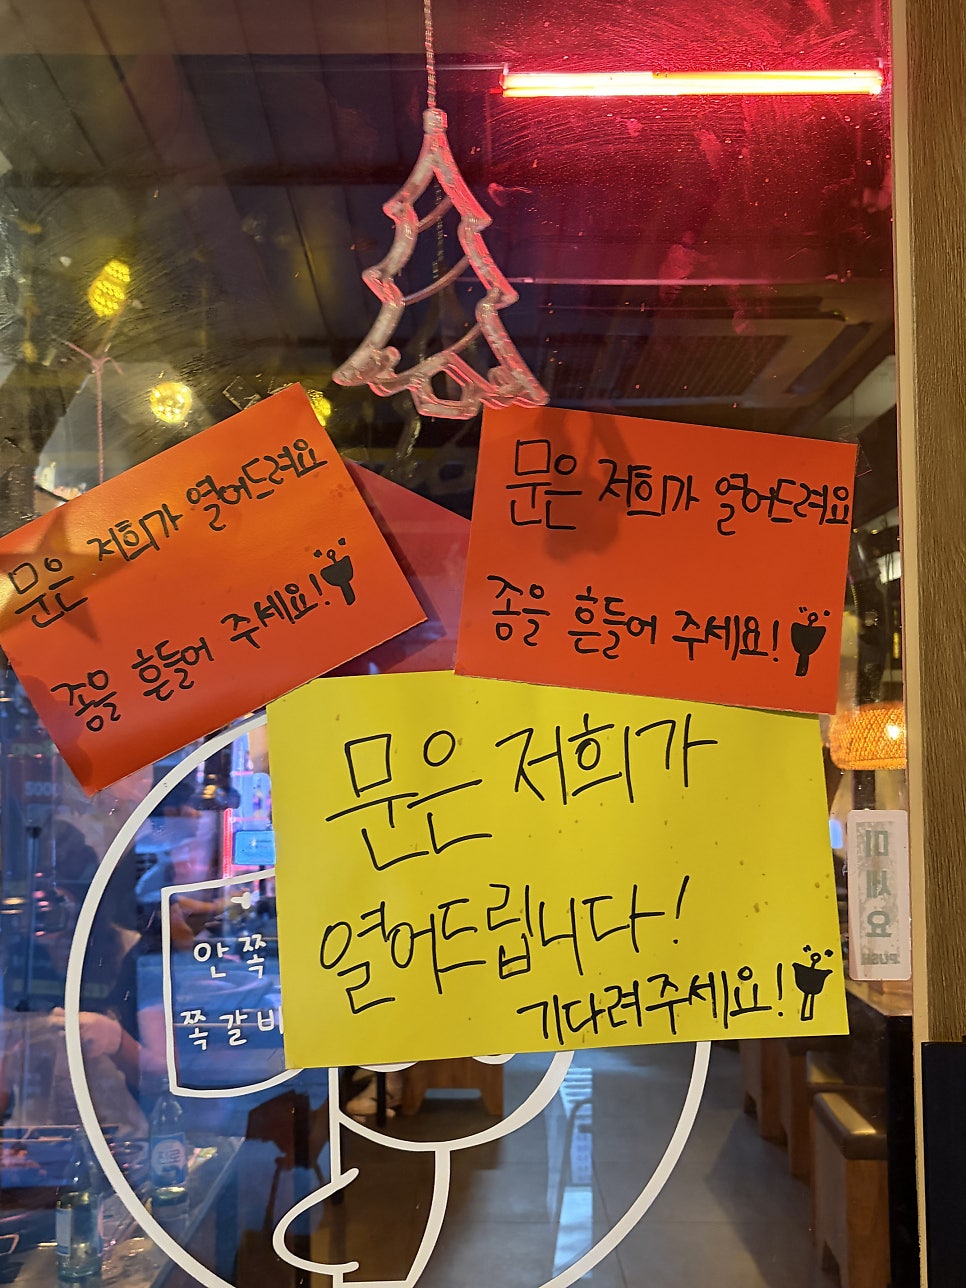 문은 저희가 열어드려요
종을 흔들어 주세요!
문은 저희가 열어드려요
종을 흔들어 주세요!
문은 저희가
열어드립니다!
기다려주세요!
안쪽
쪽갈비
미세요
PUSH